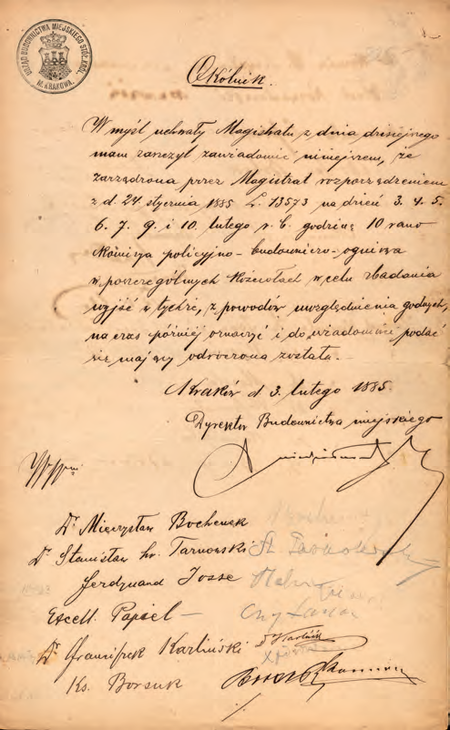 URZĄD BUDOWNICTWA MIEJSKIEGO STOŁ. KRÓL. M. KRAKOWA.
Okólnik.
W myśl uchwały Magistratu z dnia dzisiejszego
mam zaszczyt zawiadomić niniejszem, że
zarządzona przez Magistrat rozporządzeniem
z d. 24 stycznia 1885 L. 13573 na dzień 3. 4. 5.
6. 7. 9. i 10. lutego r. b. godzinę 10 rano
Komisya policyjno-budowniczo-ogniowa
w poszczególnych Kościołach w celu zbadania
wyjść z tychże, z powodów uwzględnienia godnych,
na czas później oznaczyć i do wiadomości podać
się mający odroczona została.
Kraków d 3. lutego 1885.
Dyrektor Budownictwa miejskiego
Dr Mieczysław Bochenek
Dr Stanisław hr. Tarnowski
Ferdynand Josse
Excell. Popiel
Dr Franciszek Karliński
Ks. Borsuk